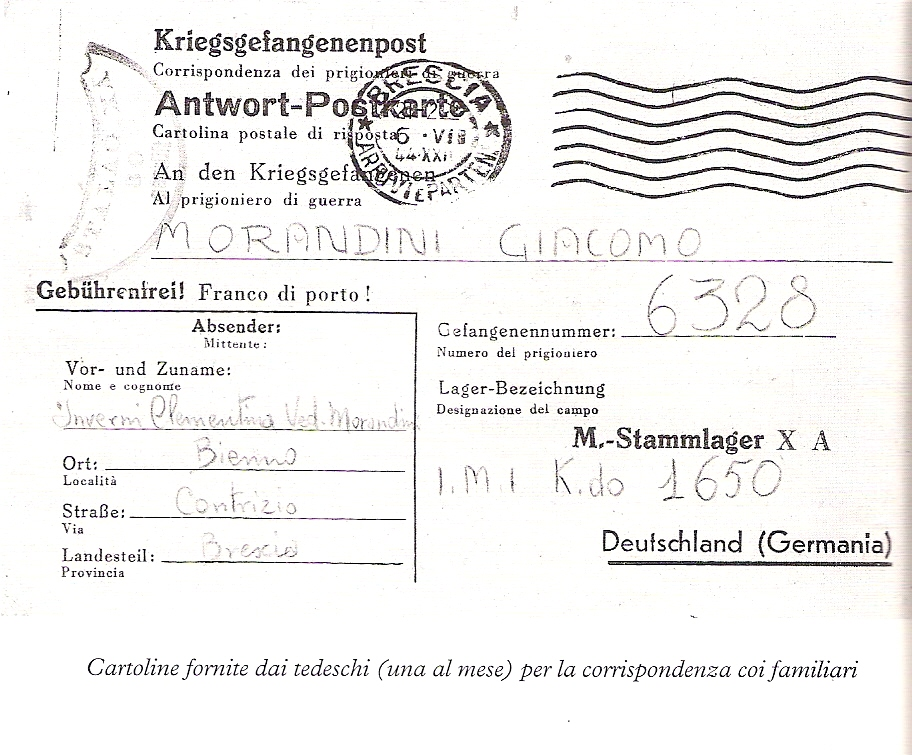 Kriegsgefangenenpost
Corrispondenza dei prigionieri di guerra
Antwort-Postkarte
Cartolina postale di risposta
An den Kriegsgefangenen
Al prigioniero di guerra
BRESCIA
6 · VII
44·XXII
MORANDINI GIACOMO
Gebührenfrei! Franco di porto!
Absender:
Mittente:
Vor- und Zuname:
Nome e cognome
Inverni Clementina Ved. Morandini
Ort: Bienno
Località
Straße: Contrizio
Via
Landesteil: Brescia
Provincia
Gefangenennummer: 6328
Numero del prigioniero
Lager-Bezeichnung
Designazione del campo
M.-Stammlager X A
I.M.I K.do 1650
Deutschland (Germania)
Cartoline fornite dai tedeschi (una al mese) per la corrispondenza coi familiari